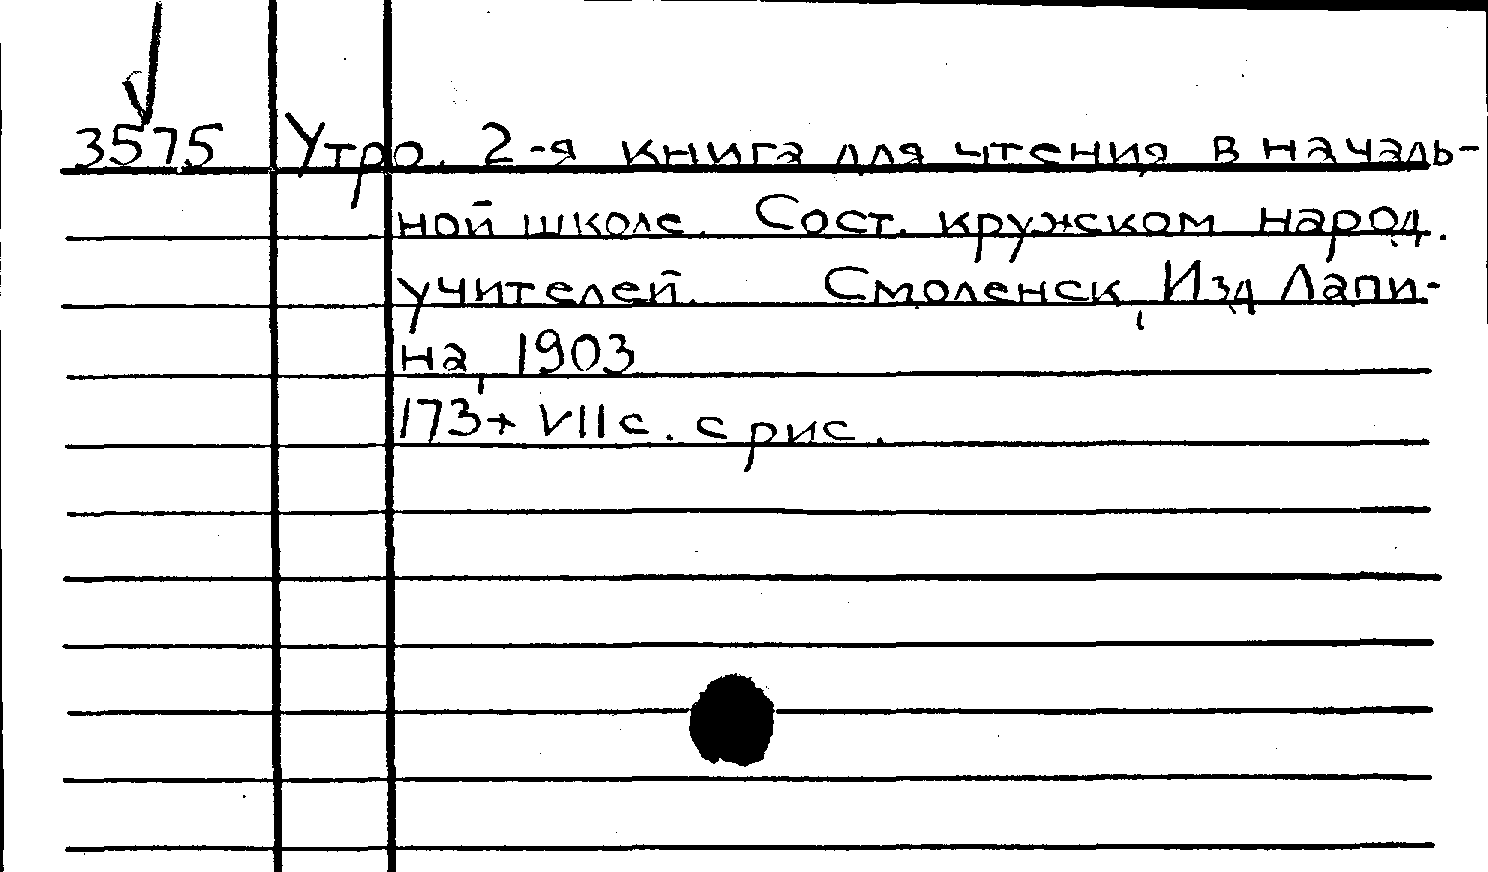 3575 Утро. 2-я книга для чтения в началь-
ной школе. Сост. кружском народ.
учителей. Смоленск, Изд Лапи-
на, 1903
173+ VII с. с рис.